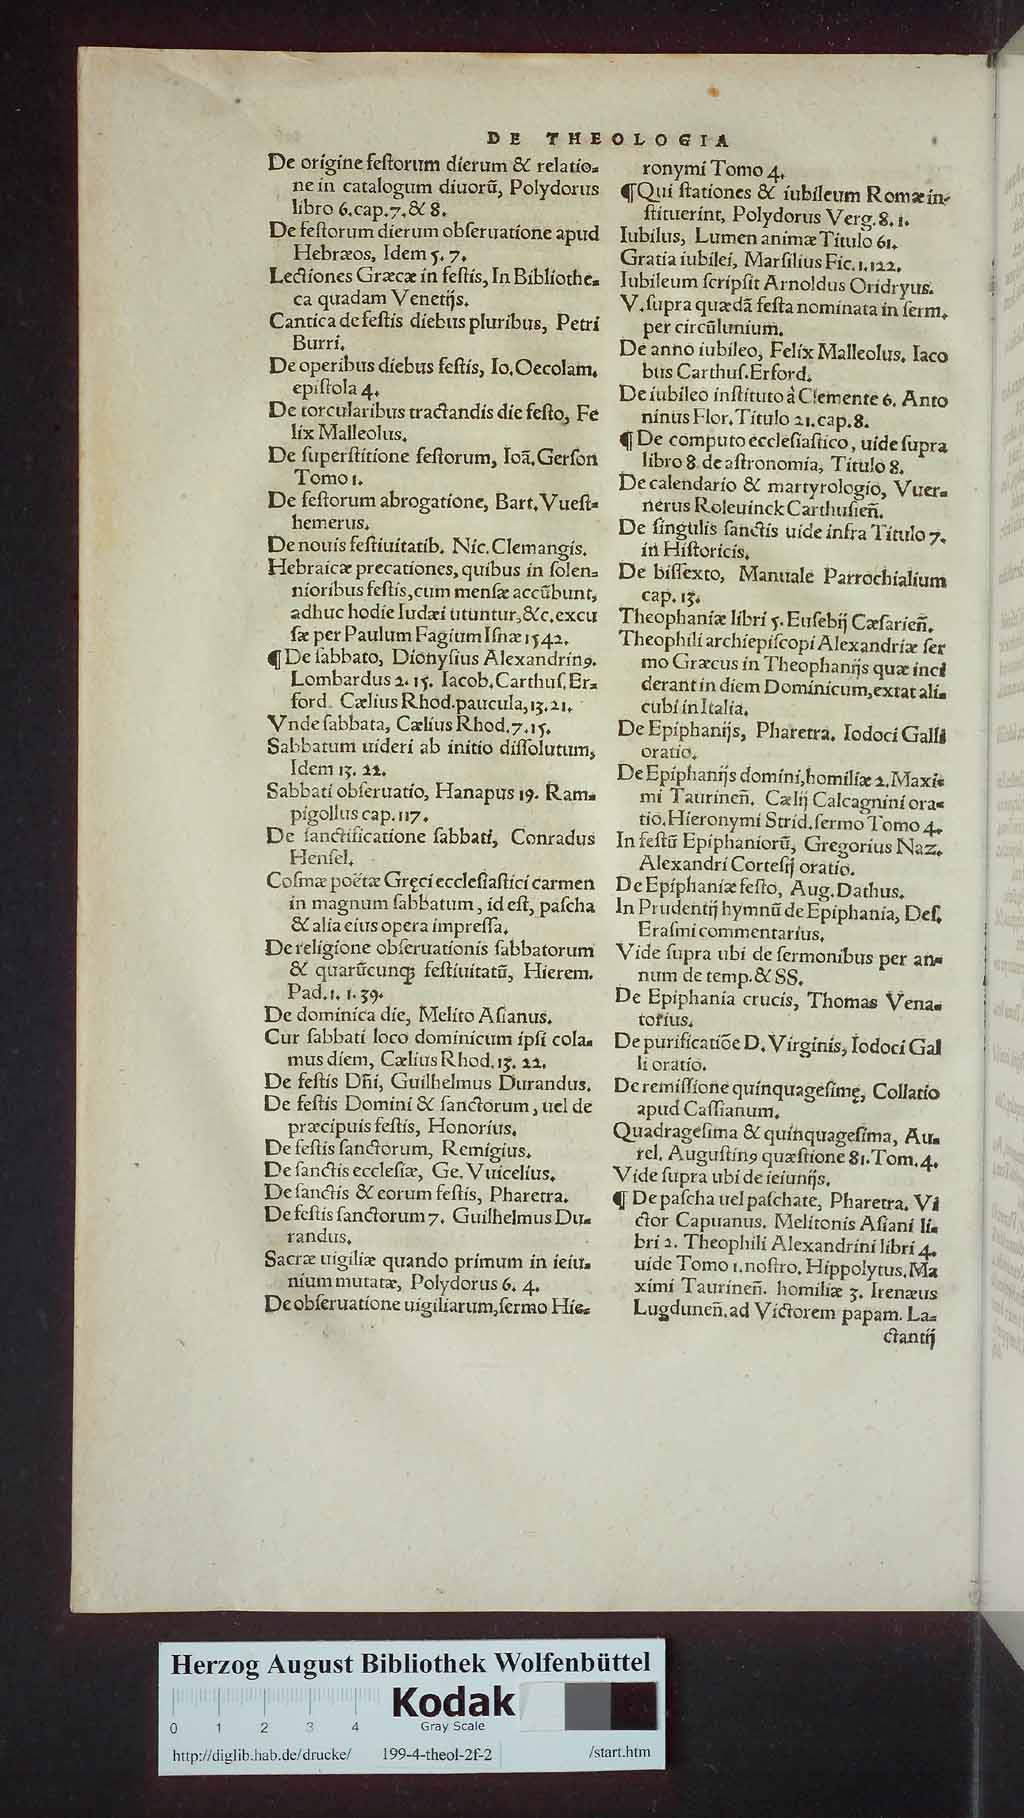 DE THEOLOGIA
De origine feſtorum dierum & relatio-
ne in catalogum diuorũ, Polydorus
libro 6. cap. 7. & 8.
De feſtorum dierum obſeruatione apud
Hebræos, Idem 5. 7.
Lectiones Græcæ in feſtis, In Bibliothe-
ca quadam Venetijs.
Cantica de feſtis diebus pluribus, Petri
Burri.
De operibus diebus feſtis, Io. Oecolam.
epiſtola 4.
De torcularibus tractandis die feſto, Fe
lix Malleolus.
De ſuperſtitione feſtorum, Ioã. Gerſon
Tomo 1.
De feſtorum abrogatione, Bart. Vueſt-
hemerus.
De nouis feſtiuitatib. Nic. Clemangis.
Hebraicæ precationes, quibus in ſolen-
nioribus feſtis, cum menſæ accũbunt,
adhuc hodie Iudæi utuntur, &c. excu
ſæ per Paulum Fagium Iſnæ 1542.
¶ De ſabbato, Dionyſius Alexandrinꝰ.
Lombardus 2. 15. Iacob. Carthuſ. Er-
ford. Cælius Rhod. paucula, 13. 21.
Vnde ſabbata, Cælius Rhod. 7. 15.
Sabbatum uideri ab initio diſſolutum,
Idem 13. 22.
Sabbati obſeruatio, Hanapus 19. Ram-
pigollus cap. 117.
De ſanctificatione ſabbati, Conradus
Henſel.
Coſmæ poëtæ Gręci eccleſiaſtici carmen
in magnum ſabbatum, id eſt, paſcha
& alia eius opera impreſſa.
De religione obſeruationis ſabbatorum
& quarũcunqꝫ feſtiuitatũ, Hierem.
Pad. 1. 1. 39.
De dominica die, Melito Aſianus.
Cur ſabbati loco dominicum ipſi cola-
mus diem, Cælius Rhod. 13. 22.
De feſtis Dñi, Guilhelmus Durandus.
De feſtis Domini & ſanctorum, uel de
præcipuis feſtis, Honorius.
De feſtis ſanctorum, Remigius.
De ſanctis eccleſiæ, Ge. Vuicelius.
De ſanctis & eorum feſtis, Pharetra.
De feſtis ſanctorum 7. Guilhelmus Du-
randus.
Sacræ uigiliæ quando primum in ieiu-
nium mutatæ, Polydorus 6. 4.
De obſeruatione uigiliarum, ſermo Hie-
ronymi Tomo 4.
¶ Qui ſtationes & iubileum Romæ in-
ſtituerint, Polydorus Verg. 8. 1.
Iubilus, Lumen animæ Titulo 61.
Gratia iubilei, Marſilius Fic. 1. 122.
Iubileum ſcripſit Arnoldus Oridryus.
V. ſupra quædã feſta nominata in ſerm.
per circũlunium.
De anno iubileo, Felix Malleolus. Iaco
bus Carthuſ. Erford.
De iubileo inſtituto à Clemente 6. Anto
ninus Flor. Titulo 21. cap. 8.
¶ De computo eccleſiaſtico, uide ſupra
libro 8. de aſtronomia, Titulo 8.
De calendario & martyrologio, Vuer-
nerus Roleuinck Carthuſien̄.
De ſingulis ſanctis uide infra Titulo 7.
in Hiſtoricis.
De biſſexto, Manuale Parrochialium
cap. 13.
Theophaniæ libri 5. Euſebij Cæſarien̄.
Theophili archiepiſcopi Alexandriæ ſer
mo Græcus in Theophanijs quæ inci
derant in diem Dominicum, extat ali-
cubi in Italia.
De Epiphanijs, Pharetra. Iodoci Galli
oratio.
De Epiphanijs domini, homiliæ 2. Maxi-
mi Taurinen̄. Cælij Calcagnini ora-
tio. Hieronymi Strid. ſermo Tomo 4.
In feſtũ Epiphaniorũ, Gregorius Naz.
Alexandri Corteſij oratio.
De Epiphaniæ feſto, Aug. Dathus.
In Prudentij hymnũ de Epiphania, Deſ.
Eraſmi commentarius.
Vide ſupra ubi de ſermonibus per an-
num de temp. & SS.
De Epiphania crucis, Thomas Vena-
torius.
De purificatiõe D. Virginis, Iodoci Gal
li oratio.
De remiſſione quinquageſimę, Collatio
apud Caſſianum.
Quadrageſima & quinquageſima, Au-
rel. Auguſtinꝰ quæſtione 81. Tom. 4.
Vide ſupra ubi de ieiunijs.
¶ De paſcha uel paſchate, Pharetra. Vi
ctor Capuanus. Melitonis Aſiani li-
bri 2. Theophili Alexandrini libri 4.
uide Tomo 1. noſtro. Hippolytus. Ma
ximi Taurinen̄. homiliæ 3. Irenæus
Lugdunen̄. ad Victorem papam. La-
ctantij
Herzog August Bibliothek Wolfenbüttel
Kodak
Gray Scale
0 1 2 3 4
http://diglib.hab.de/drucke/ 199-4-theol-2f-2 /start.htm